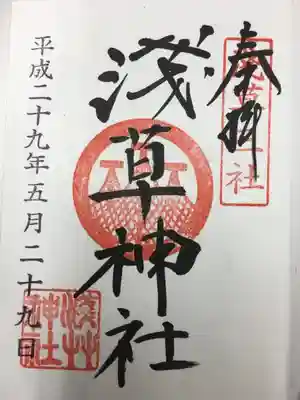 奉拝
浅草神社
平成二十九年五月二十九日
浅草
神社